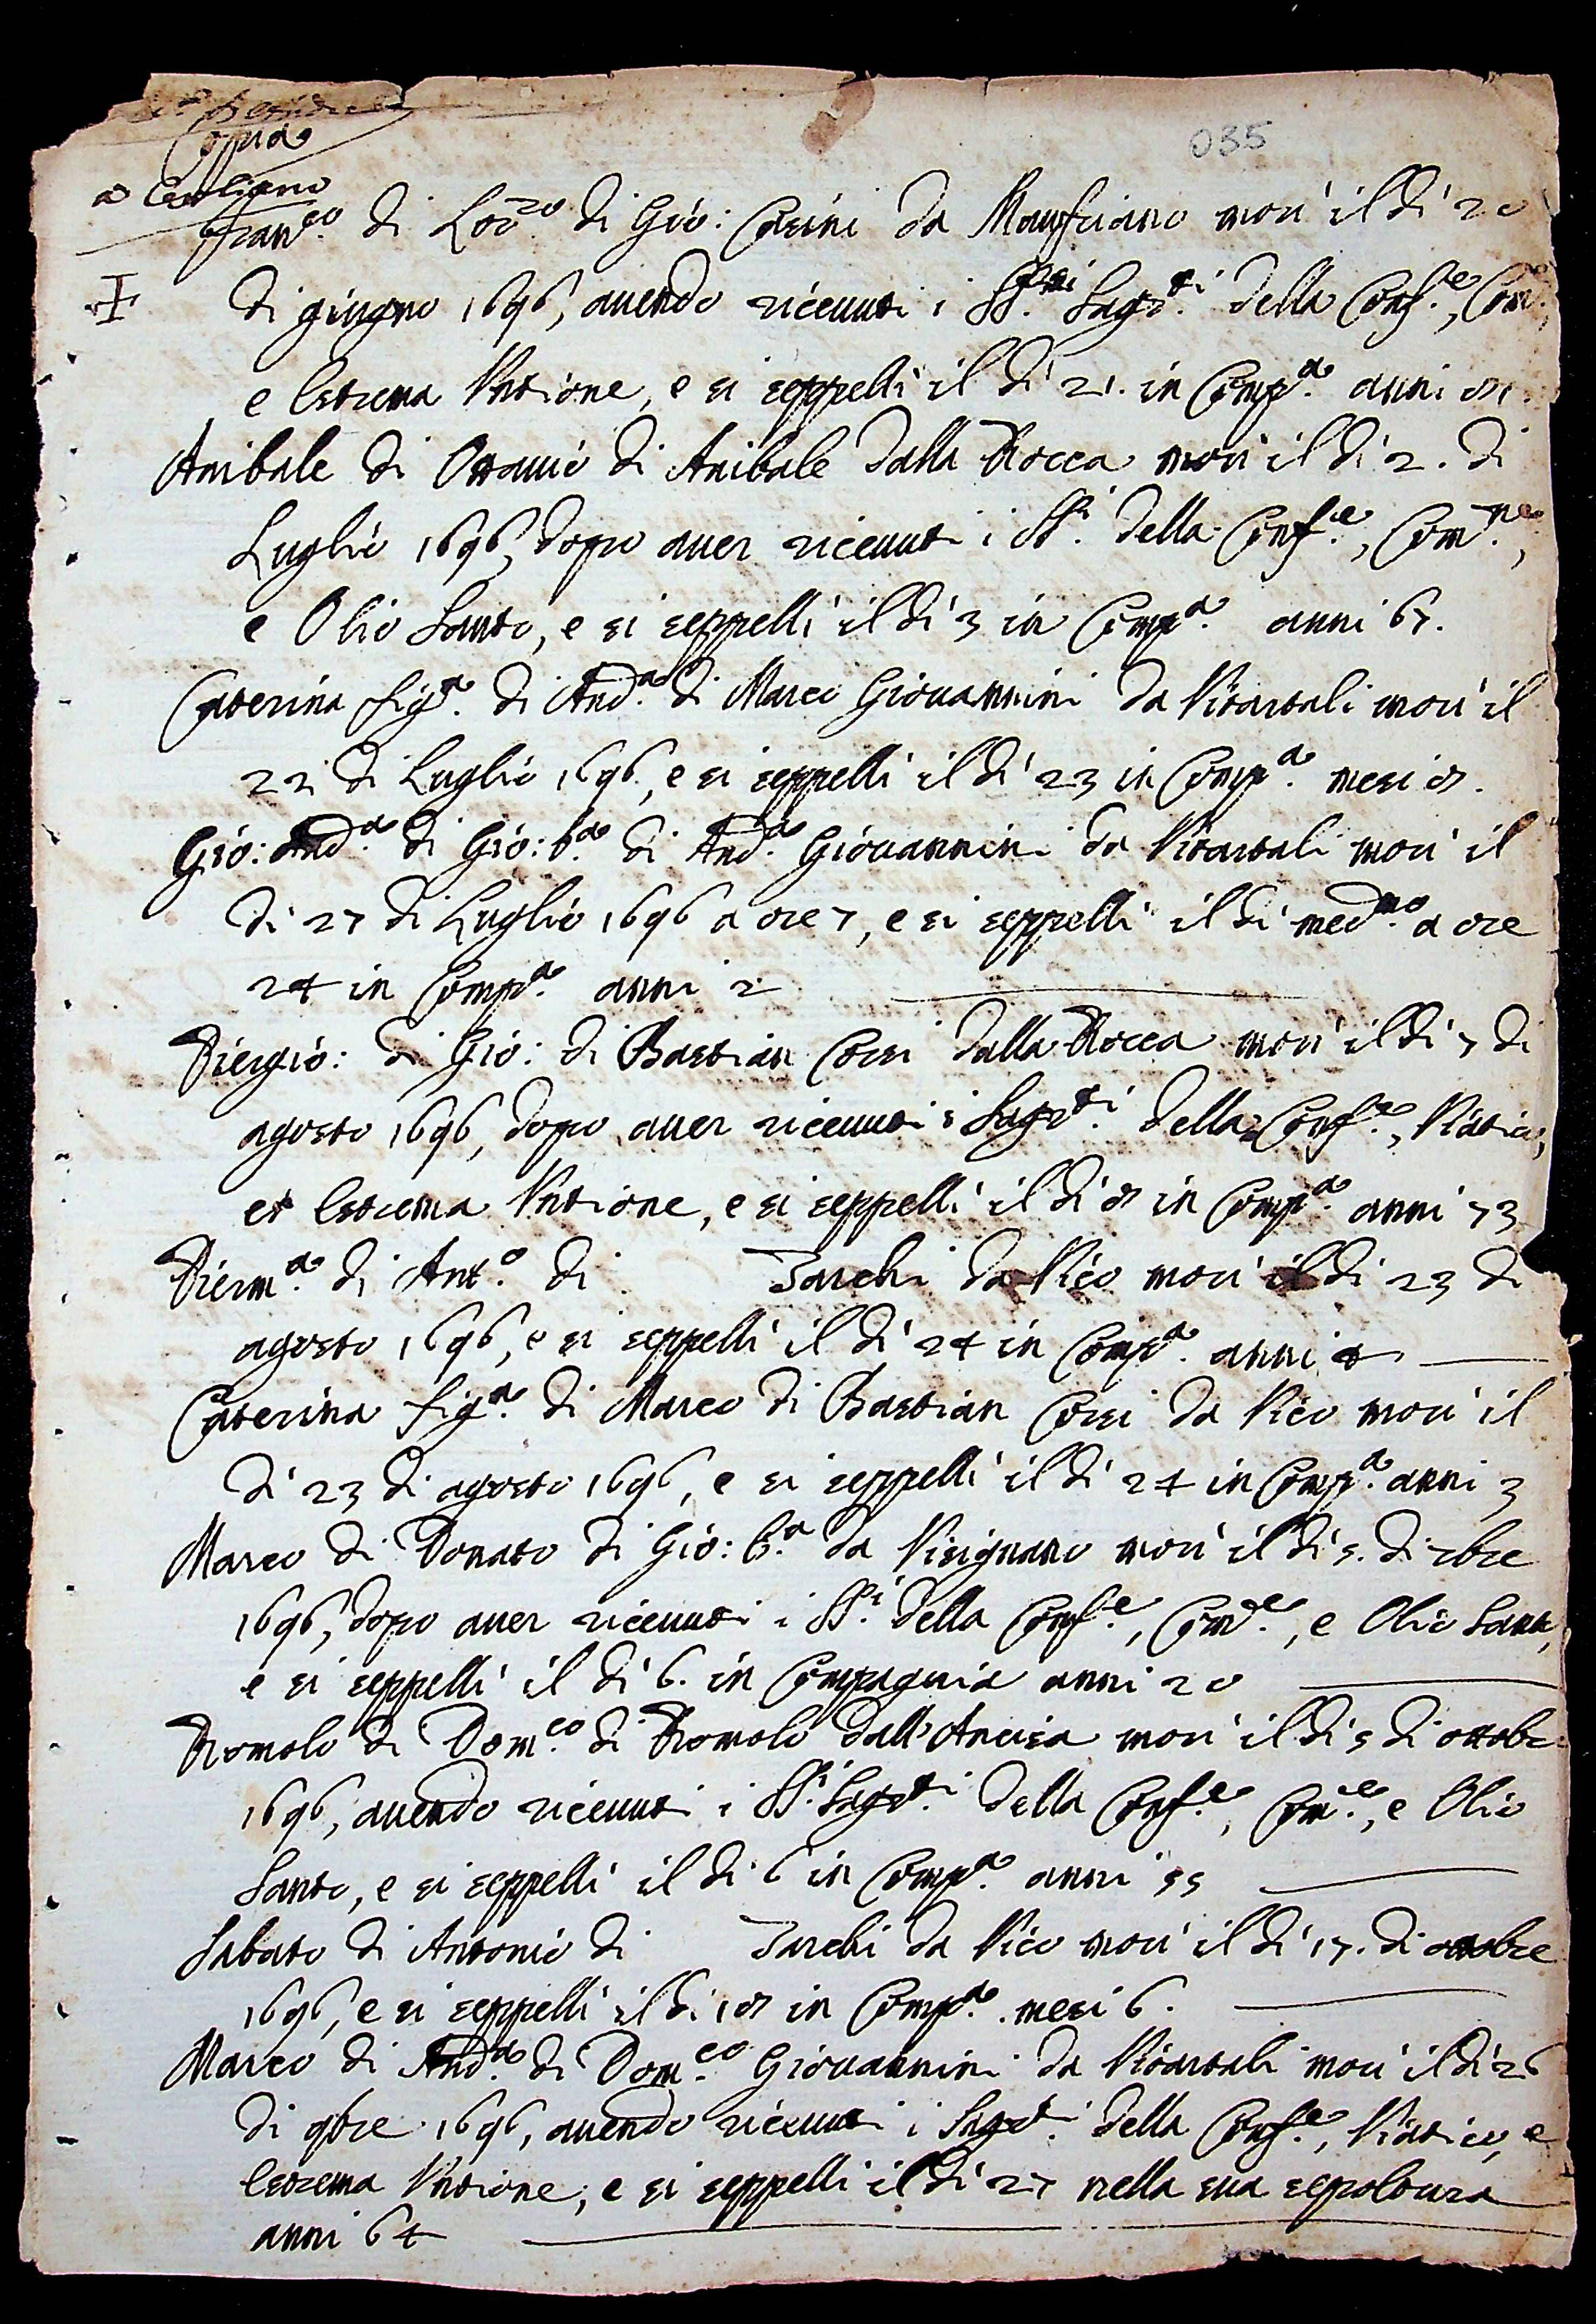 Copia
035
a Cerliano
Fran.co di Lor.zo di Gio: Corsini da Manfriano morì il dì 20
di giugno 1696, auendo riceuuti i SS.mi Sagr.ti della Conf.e, Com.
e Estrema Vntione, e si seppellì il dì 21. in Comp.a anni 81
Anibale di Ottauio di Anibale dalla Rocca morì il dì 2. di
Luglio 1696, dopo auer riceuuti i SS.i della Conf.e, Com.ne,
e Olio Santo, e si seppellì il dì 3 in Comp.a anni 67.
Caterina fig.a di And.a di Marco Giouannini da Vitartali morì il
22 di Luglio 1696, e si seppellì il dì 23 in Comp.a mesi 8.
Gio: And.a di Gio: b.a di And.a Giouannini da Vitartali morì il
dì 27 di Luglio 1696 a ore 7, e si seppellì il dì med.mo a ore
24 in Comp.a anni 2
Piergio: di Gio: di Bastian Corsi dalla Rocca morì il dì 7 di
agosto 1696, dopo auer riceuuti i Sagr.ti della Conf.e, Viatico,
et Estrema Vntione, e si seppellì il dì 8 in Comp.a anni 73
Pierm.a di Ant.o di Tarchi da Vico morì il dì 23 di
agosto 1696, e si seppellì il dì 24 in Comp.a anni 4
Caterina fig.a di Marco di Bastian Corsi da Vico morì il
dì 23 di agosto 1696, e si seppellì il dì 24 in Comp.a anni 3
Marco di Donato di Gio: b.a da Visignano morì il dì 5. di 7bre
1696, dopo auer riceuuti i SS.i della Conf.e, Com.e, e Olio Santo,
e si seppellì il dì 6. in Compagnia anni 20
Romolo di Dom.co di Romolo dall'Ancisa morì il dì 5 di ottobre
1696, auendo riceuuti i SS.i Sagr.ti della Conf.e, Com.e, e Olio
Santo, e si seppellì il dì 6 in Comp.a anni 55
Sabato di Antonio di Tarchi da Vico morì il dì 17. di ottobre
1696, e si seppellì il dì 18 in Comp.a mesi 6.
Marco di And.a di Dom.co Giouannini da Vitartali morì il dì 26
di 9bre 1696, auendo riceuuti i Sagr.ti della Conf.e, Viatico, e
Estrema Vntione, e si seppellì il dì 27 nella sua sepoltura
anni 64